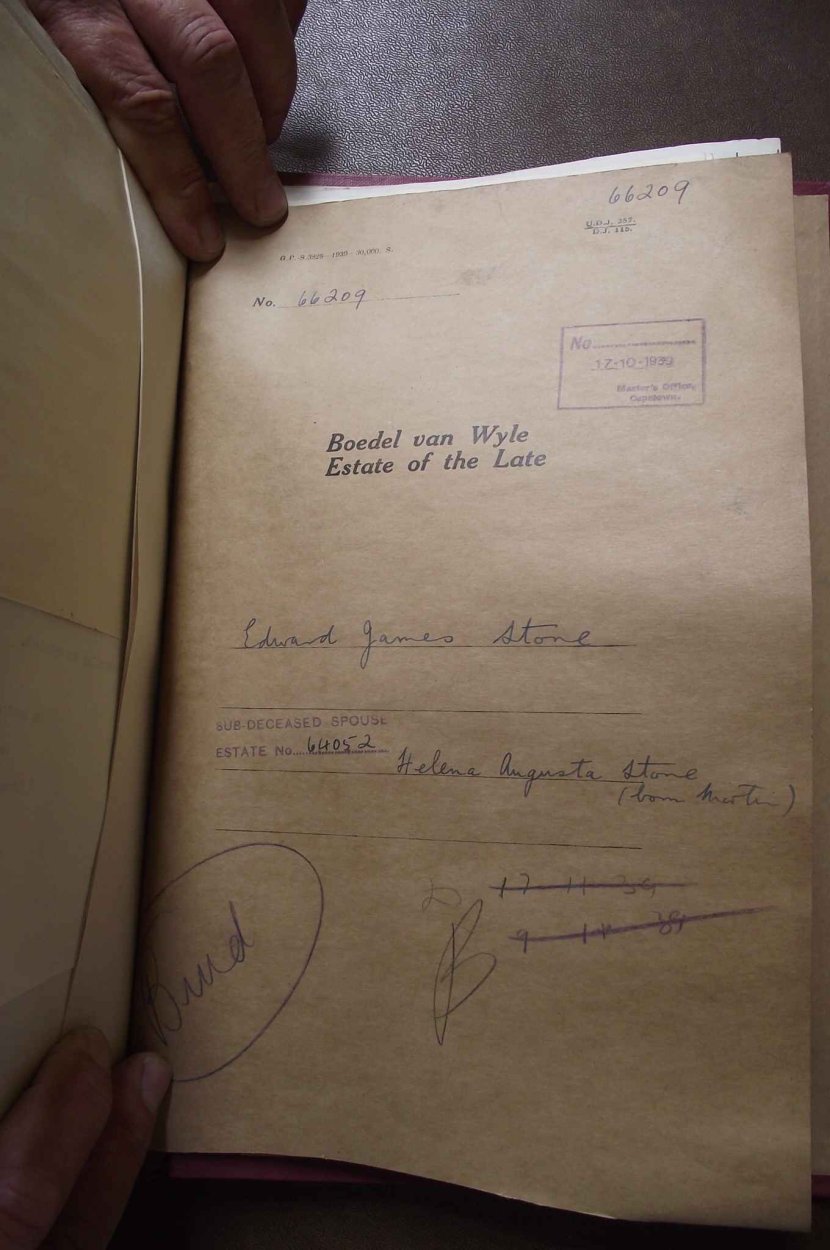 66209
U.D.J. 257.
D.J. 115.
G.P.-S.3928—1939—30,000. S.
No. 66209
No
17-10-1939
Master's Office,
Capetown.
Boedel van Wyle
Estate of the Late
Edward James Stone
SUB-DECEASED SPOUSE
ESTATE No. 64052
Helena Augusta Stone
(born Martin)
17 11 39
9 39
B
Bind